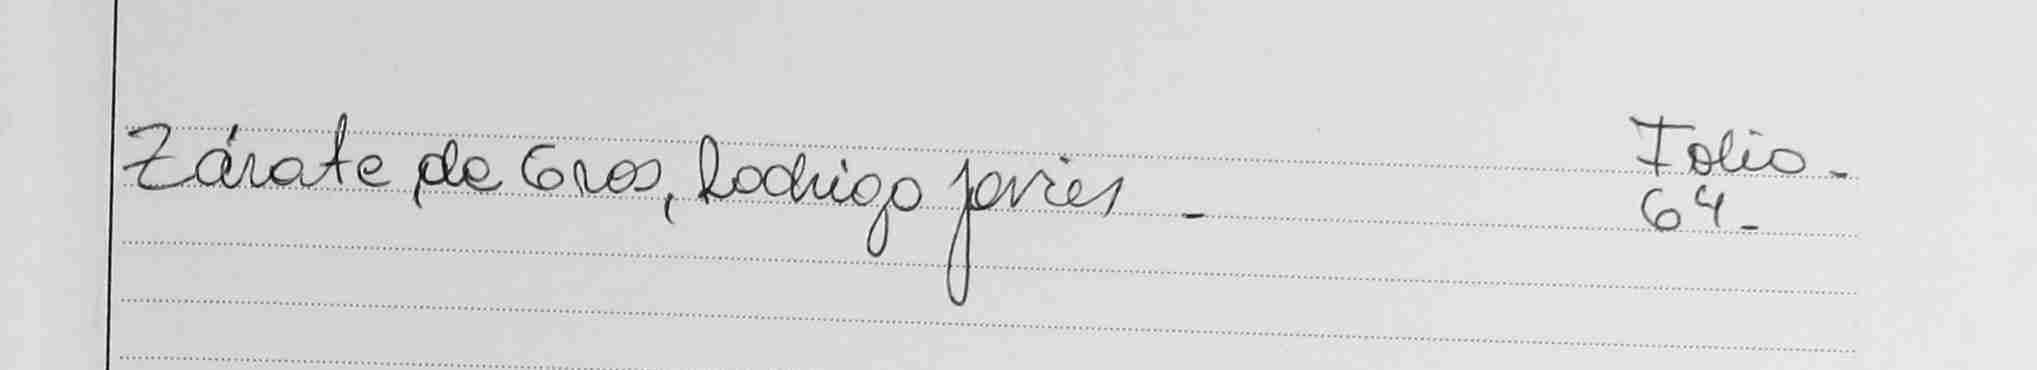 Zárate de Gros, Rodrigo Javier -
Folio -
64 -